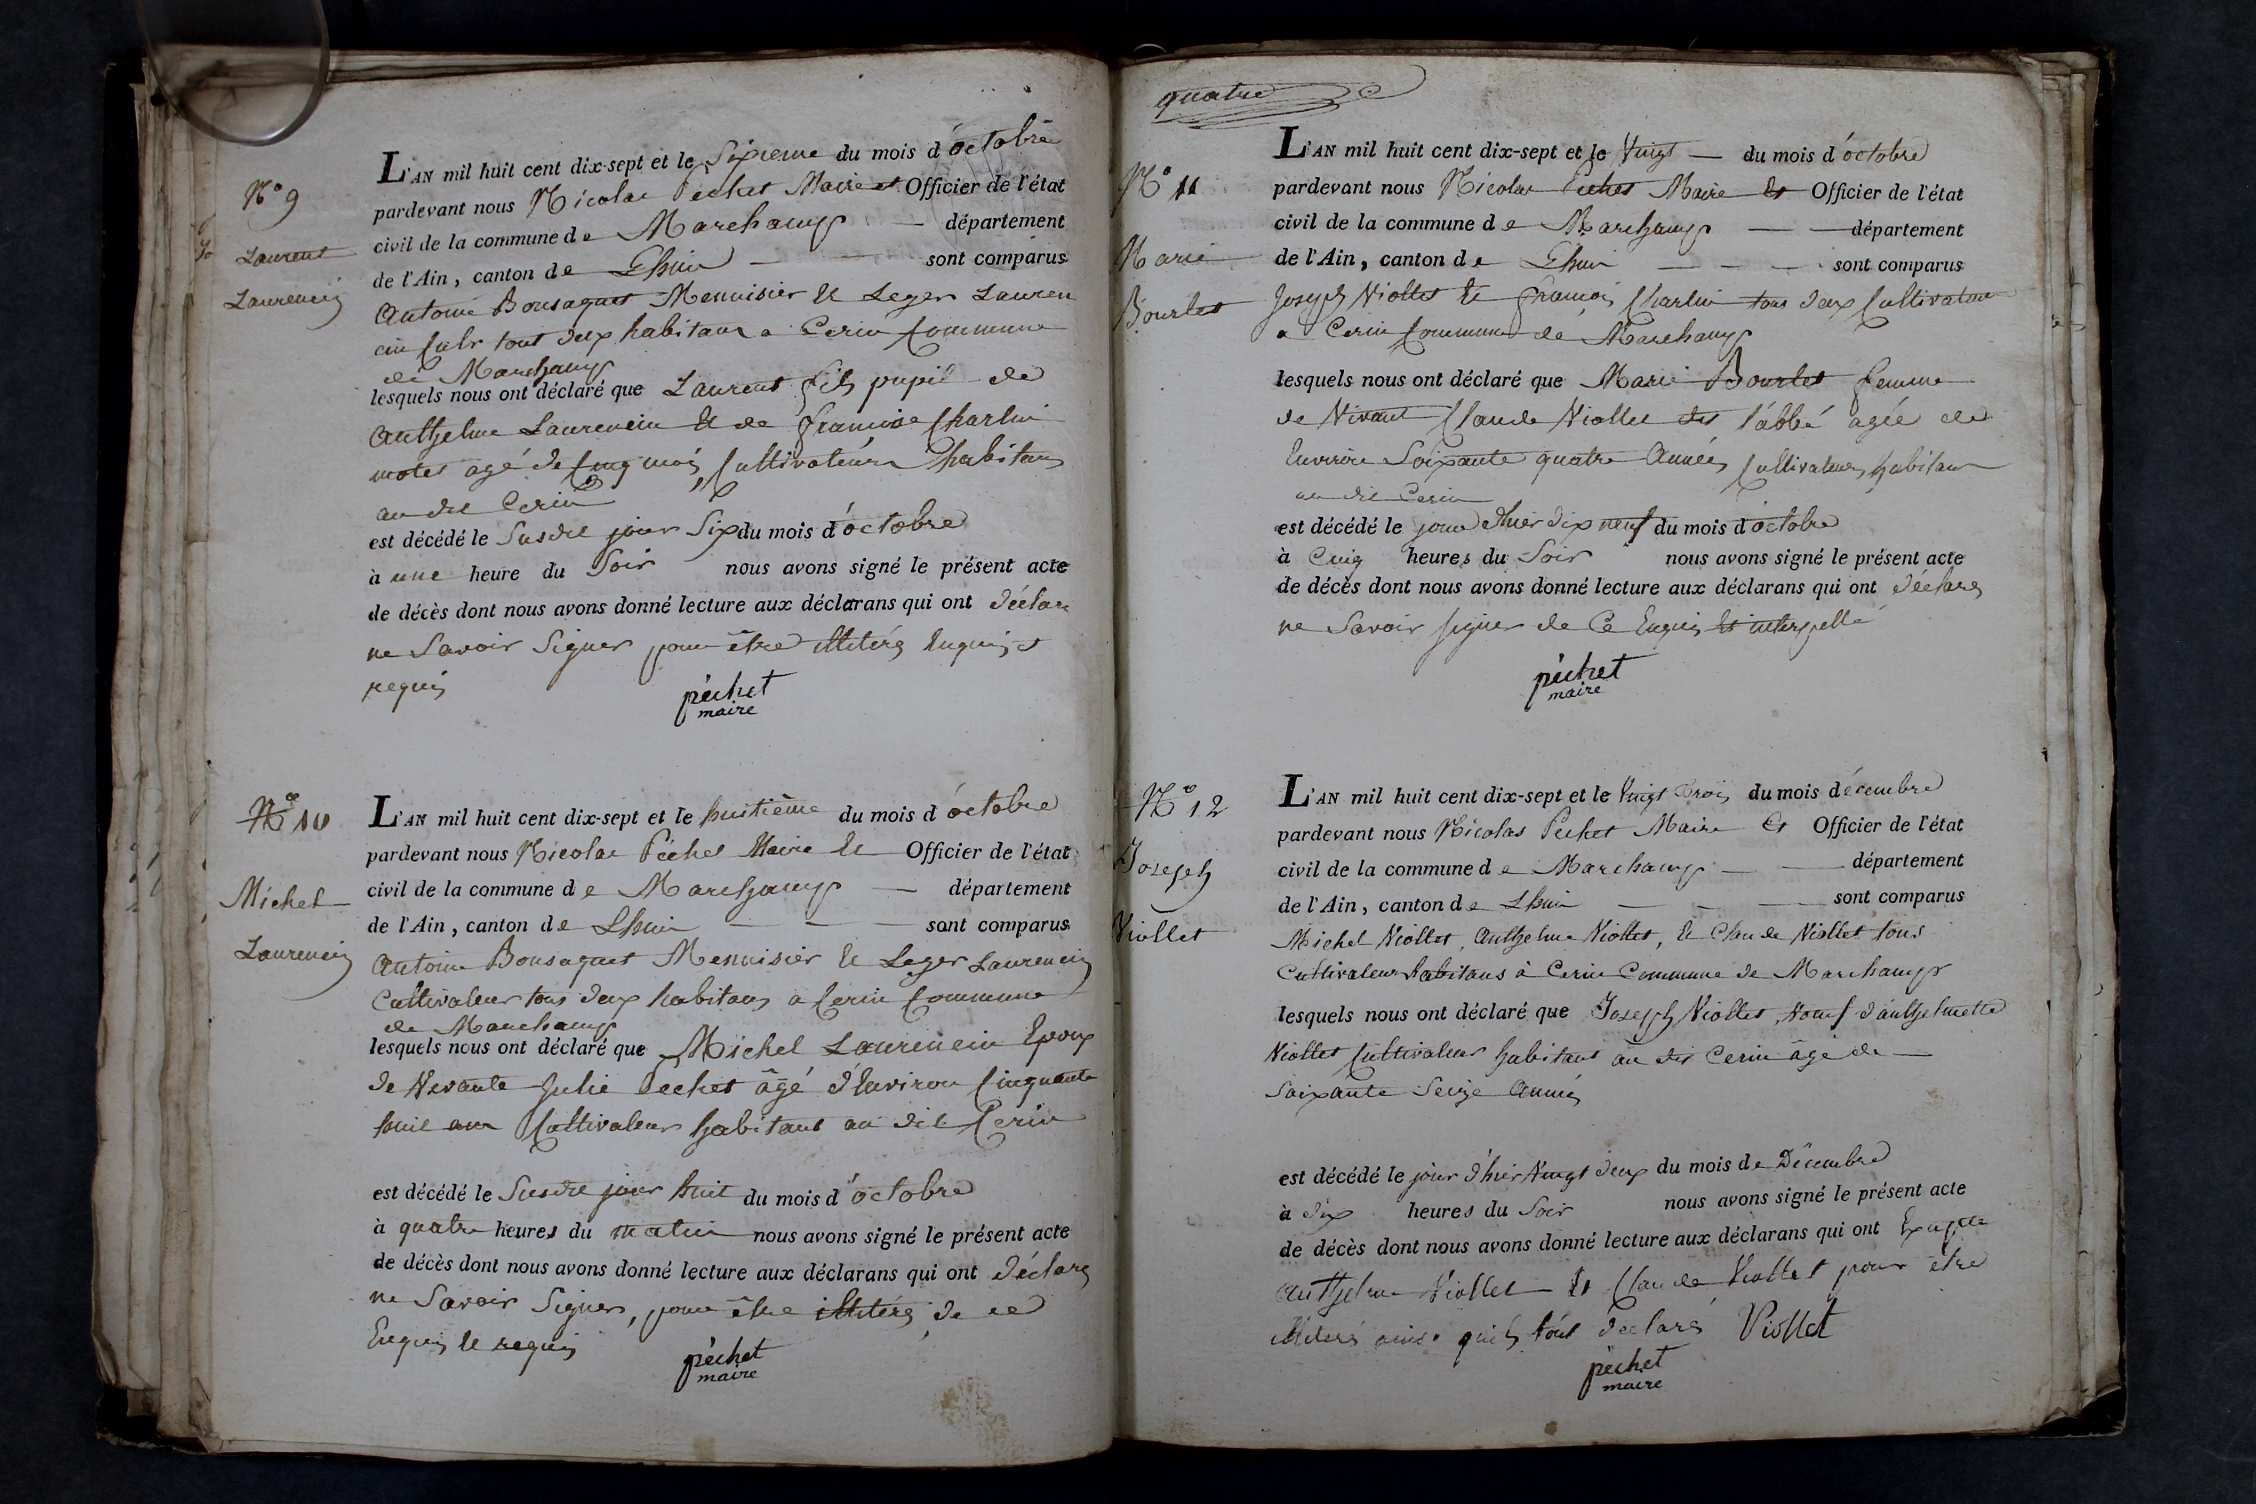 N° 9
Laurent
Laurencin
L'AN mil huit cent dix-sept et le Sixieme du mois d'octobre
pardevant nous Nicolas Pechet Maire et Officier de l'état
civil de la commune de Marchamp département
de l'Ain, canton de Lhuis sont comparus
Antoine Bonsaquet Menuisier et Leger Lauren
cin Cultr tout deux habitans a Cerin Commune
de Marchamp
lesquels nous ont déclaré que Laurent fils pupil de
Anthelme Laurencin et de Francoise Charlin
motet agé de Cinq mois, Cultivateurs habitans
au dit Cerin
est décédé le Susdit jour Six du mois d'octobre
à une heure du Soir nous avons signé le présent acte
de décès dont nous avons donné lecture aux déclarans qui ont déclare
ne Savoir Signer pour être illitérés Enquis et
requis
péchet
maire
N° 10
Michel
Laurencin
L'AN mil huit cent dix-sept et le huitième du mois d'octobre
pardevant nous Nicolas Péchet Maire et Officier de l'état
civil de la commune de Marchamp département
de l'Ain, canton de Lhuis sont comparus
Antoine Bonsaquet Menuisier et Leger Laurencin
Cultivateur tous deux habitans a Cerin Commune
de Marchamp
lesquels nous ont déclaré que Michel Laurencin Epoux
de Vivante Julie Pechet âgé d'Environ Cinquante
huit ans Cultivateur habitant au dit Cerin
est décédé le Susdit jour huit du mois d'octobre
à quatre heures du matin nous avons signé le présent acte
de décès dont nous avons donné lecture aux déclarans qui ont déclarés
ne Savoir Signer, pour être illitérés, de ce
Enquis et requis
péchet
maire
quatre
N° 11
Marie
Bourlet
L'AN mil huit cent dix-sept et le Vingt du mois d'octobre
pardevant nous Nicolas Pechet Maire et Officier de l'état
civil de la commune de Marchamp département
de l'Ain, canton de Lhuis sont comparus
Joseph Viollet et François Charlin tous deux Cultivateurs
a Cerin Commune de Marchamp
lesquels nous ont déclaré que Marie Bourlet femme
de Vivant Claude Viollet dit l'abbé agée de
Environ Soixante quatre Années Cultivateurs habitans
au dit Cerin
est décédé le jour d'hier dix neuf du mois d'octobre
à Cinq heures du Soir nous avons signé le présent acte
de décès dont nous avons donné lecture aux déclarans qui ont déclarés
ne Savoir signer de Ce Enquis et interpellé
péchet
maire
N° 12
Joseph
Viollet
L'AN mil huit cent dix-sept et le Vingt trois du mois décembre
pardevant nous Nicolas Pechet Maire et Officier de l'état
civil de la commune de Marchamp département
de l'Ain, canton de Lhuis sont comparus
Michel Viollet, Anthelme Viollet, et Claude Viollet tous
Cultivateurs habitans à Cerin Commune de Marchamp
lesquels nous ont déclaré que Joseph Viollet, Veuf d'anthelmette
Viollet Cultivateur habitant au dit Cerin âgé de
Soixante Seize Années
est décédé le jour d'hier Vingt deux du mois de Décembre
à dix heures du Soir nous avons signé le présent acte
de décès dont nous avons donné lecture aux déclarans qui ont Excepté
Anthelme Viollet et Claude Viollet pour être
illiteré ainsi qu'ils l'ont déclaré Viollet
péchet
maire